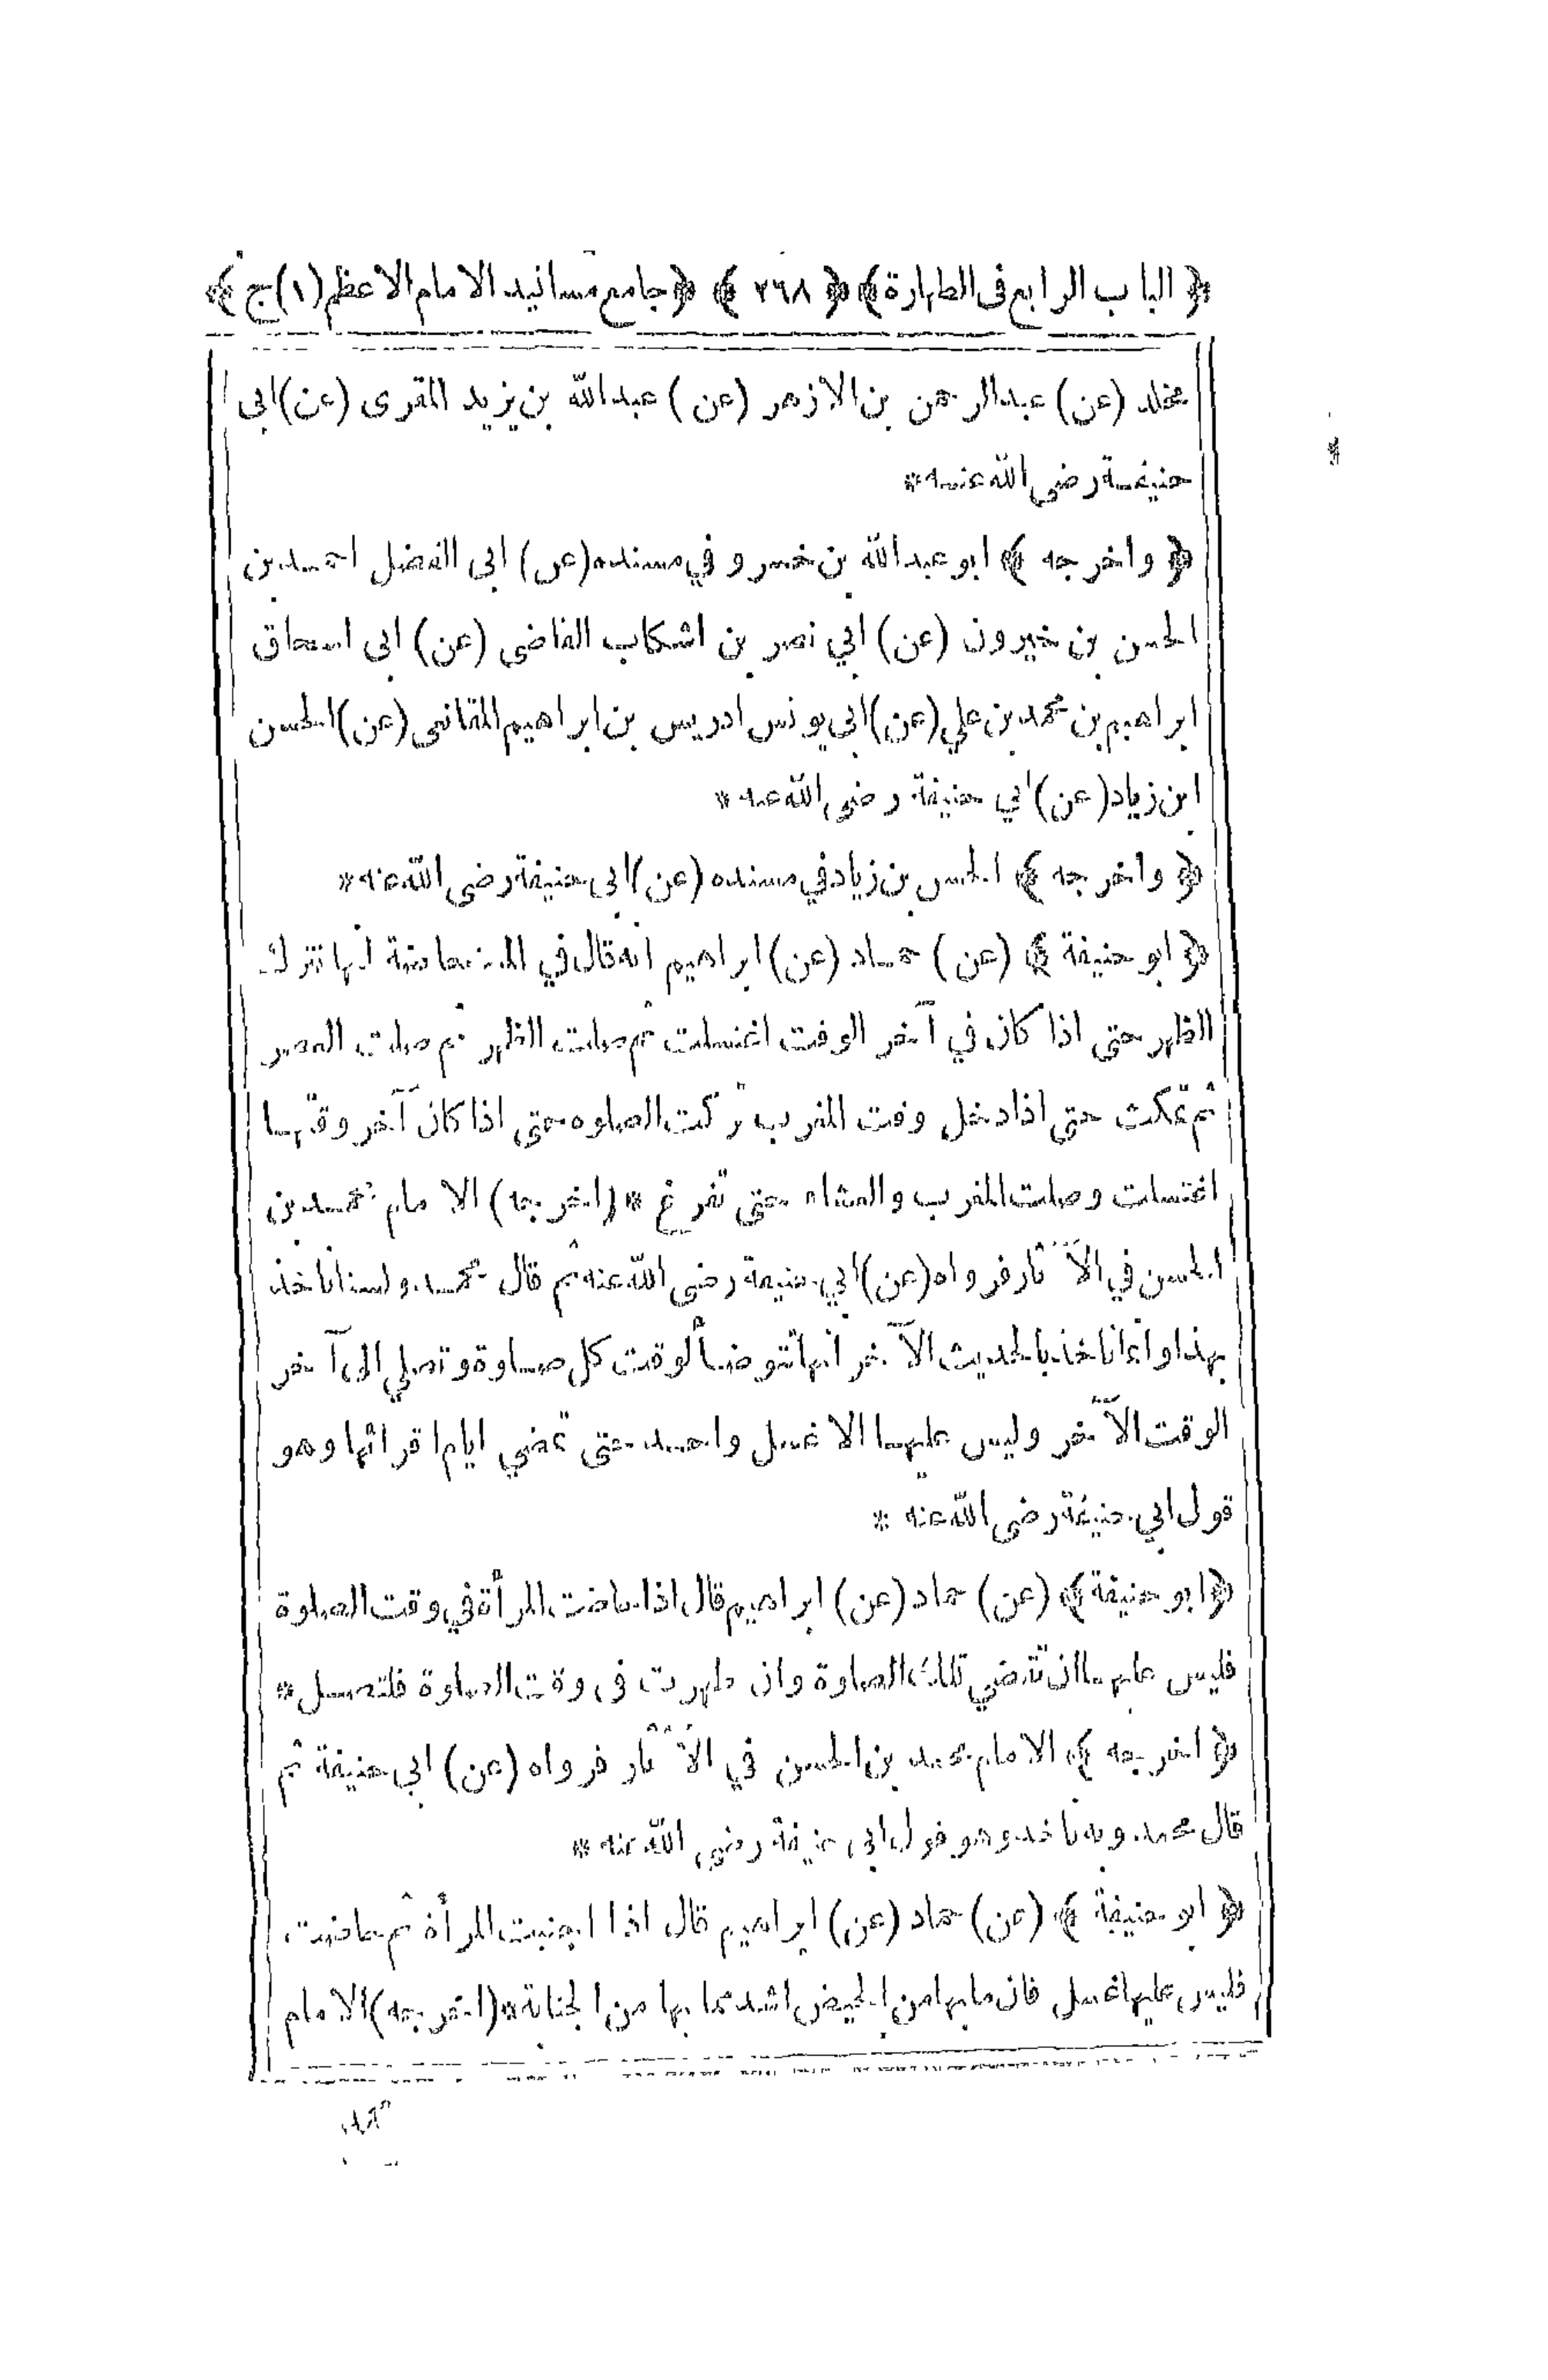 ﴿ الباب الرابع فى الطهارة ﴾ ﴿ ٢٦٨ ﴾ ﴿ جامع مسانيد الامام الاعظم (١) ج ﴾
مخلد (عن) عبدالرحمن بن الازهر (عن) عبدالله بن يزيد المقرى (عن) ابى
حنيفة رضى الله عنه *
﴿ واخرجه ﴾ ابو عبدالله بن خسرو في مسنده (عن) ابى الفضل احمد بن
الحسن بن خيرون (عن) ابي نصر بن اشكاب القاضى (عن) ابى اسحاق
ابراهيم بن محمد بن علي (عن) ابى يونس ادريس بن ابراهيم المقانعى (عن) الحسن
ابن زياد (عن) ابي حنيفة رضى الله عنه *
﴿ واخرجه ﴾ الحسن بن زياد في مسنده (عن) ابى حنيفة رضى الله عنه *
﴿ ابو حنيفة ﴾ (عن) حماد (عن) ابراهيم انه قال في المستحاضة انها تترك
الظهر حتى اذا كان في آخر الوقت اغتسلت ثم صلت الظهر ثم صلت العصر
ثم تمكث حتى اذا دخل وقت المغرب تركت الصلوه حتى اذا كان آخر وقتها
اغتسلت وصلت المغرب والعشاء حتى تفرغ * (اخرجه) الامام محمد بن
الحسن في الآثار فرواه (عن) ابي حنيفة رضى الله عنه ثم قال محمد ولسنا ناخذ
بهذا وانما ناخذ بالحديث الآخر انها تتوضأ لوقت كل صلوة وتصلي الى آخر
الوقت الآخر وليس عليها الا غسل واحد حتى تمضي ايام اقرائها وهو
قول ابي حنيفة رضى الله عنه *
﴿ ابو حنيفة ﴾ (عن) حماد (عن) ابراهيم قال اذا حاضت المرأة في وقت الصلوة
فليس عليها ان تقضي تلك الصلوة وان طهرت فى وقت الصلوة فلتصل *
﴿ اخرجه ﴾ الامام محمد بن الحسن في الآثار فرواه (عن) ابى حنيفة ثم
قال محمد وبه ناخذ وهو قول ابى حنيفة رضى الله عنه *
﴿ ابو حنيفة ﴾ (عن) حماد (عن) ابراهيم قال اذا اجنبت المرأة ثم حاضت
فليس عليها غسل فان ما بها من الحيض اشد مما بها من الجنابة * (اخرجه) الامام